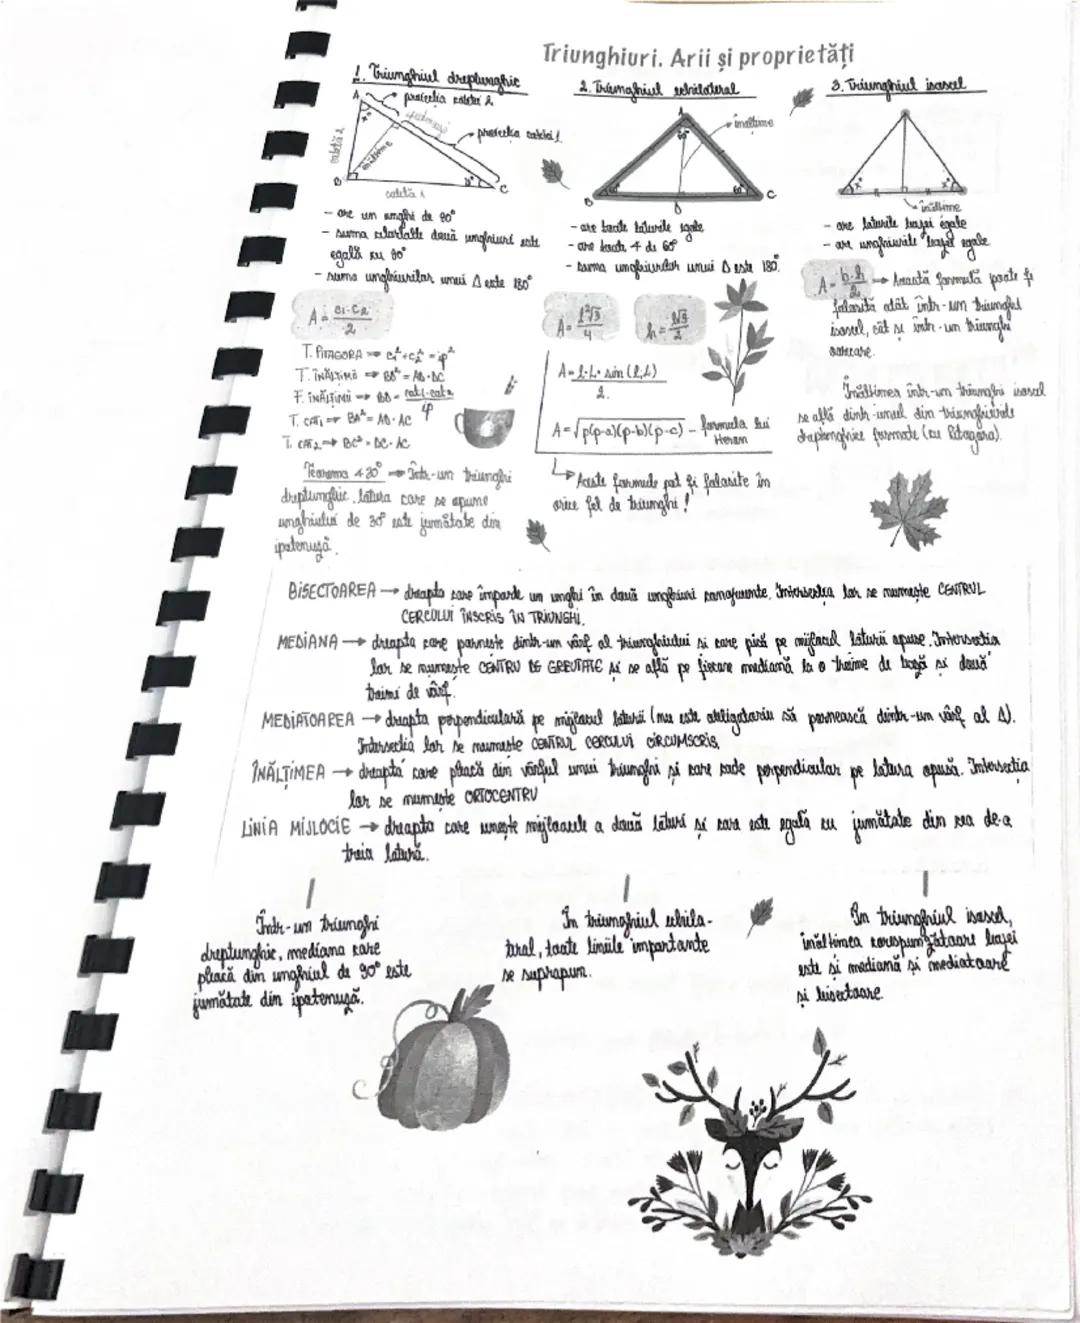 Triunghiuri. Arii și proprietăți
1. Triunghiul dreptunghic
A
proiecția catetei 2
ipotenuză
proiecția catetei 1
cateta 2
înălțime
B
cateta 1
C
- are un unghi de 90°
- suma celorlalte două unghiuri este
egală cu 90°
- suma unghiurilor unui Δ este 180°
A = c1·c2 / 2
T. PITAGORA → c₁²+c₂² = ip²
T. ÎNĂLȚIMII → BD² = AD·DC
F. ÎNĂLȚIMII → BD = cat1·cat2 / ip
T. CAT1 → BA² = AD·AC
T. CAT2 → BC² = DC·AC
Teorema ∢30° → Într-un triunghi
dreptunghic, latura care se opune
unghiului de 30° este jumătate din
ipotenuză.
2. Triunghiul echilateral
A
înălțime
60°
60°
60°
B
D
C
- are toate laturile egale
- are toate ∢ de 60°
- suma unghiurilor unui Δ este 180°.
A = l²√3 / 4
h = l√3 / 2
A = l·L·sin(l,L) / 2.
A = √p(p-a)(p-b)(p-c) - formula lui
Heron
Aceste formule pot fi folosite în
orice fel de triunghi!
3. Triunghiul isoscel
x°
x°
înălțime
- are laturile bazei egale
- are unghiurile bazei egale
A = b·h / 2 → Această formulă poate fi
folosită atât într-un triunghi
isoscel, cât și într-un triunghi
oarecare.
Înălțimea într-un triunghi isoscel
se află dintr-unul din triunghiurile
dreptunghice formate (cu Pitagora).
BISECTOAREA → dreapta care împarte un unghi în două unghiuri congruente. Intersecția lor se numește CENTRUL
CERCULUI ÎNSCRIS ÎN TRIUNGHI.
MEDIANA → dreapta care pornește dintr-un vârf al triunghiului și care pică pe mijlocul laturii opuse. Intersecția
lor se numește CENTRU DE GREUTATE și se află pe fiecare mediană la o treime de bază și două
treimi de vârf.
MEDIATOAREA → dreapta perpendiculară pe mijlocul laturii (nu este obligatoriu să pornească dintr-un vârf al Δ).
Intersecția lor se numește CENTRUL CERCULUI CIRCUMSCRIS.
ÎNĂLȚIMEA → dreapta care pleacă din vârful unui triunghi și care cade perpendicular pe latura opusă. Intersecția
lor se numește ORTOCENTRU
LINIA MIJLOCIE → dreapta care unește mijloacele a două laturi și care este egală cu jumătate din cea de-a
treia latură.
Într-un triunghi
dreptunghic, mediana care
pleacă din unghiul de 90° este
jumătate din ipotenuză.
În triunghiul echila-
teral, toate liniile importante
se suprapun.
În triunghiul isoscel,
înălțimea corespunzătoare bazei
este și mediană și mediatoare
și bisectoare.